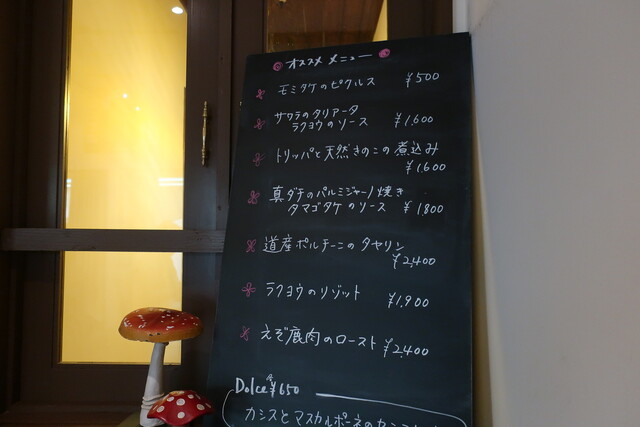 オススメ メニュー
モミタケのピクルス ¥500
サワラのタリアータ
ラクヨウのソース ¥1,600
トリッパと天然きのこの煮込み
¥1,600
真ダチのパルミジャーノ焼き
タマゴタケのソース ¥1800
道産ポルチーニのタヤリン
¥2,400
ラクヨウのリゾット ¥1,900
えぞ鹿肉のロースト ¥2,400
Dolce ¥650
カシスとマスカルポーネの